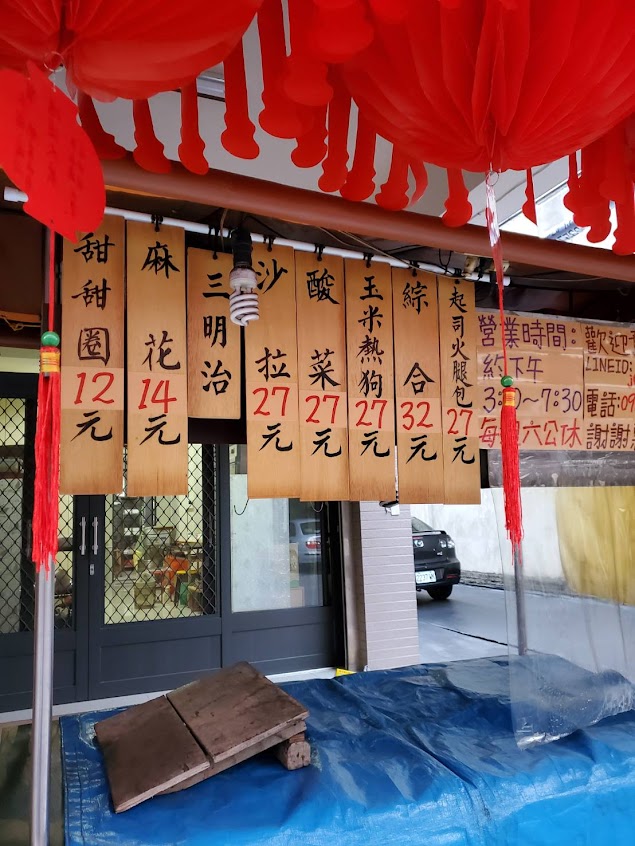 甜甜圈
12
元
麻花
14
元
三明治
沙拉
27
元
酸菜
27
元
玉米熱狗
27
元
綜合
32
元
起司火腿包
27
元
營業時間:
約下午
3:30~7:30
六公休
歡迎
LINEID:
電話:09
謝謝